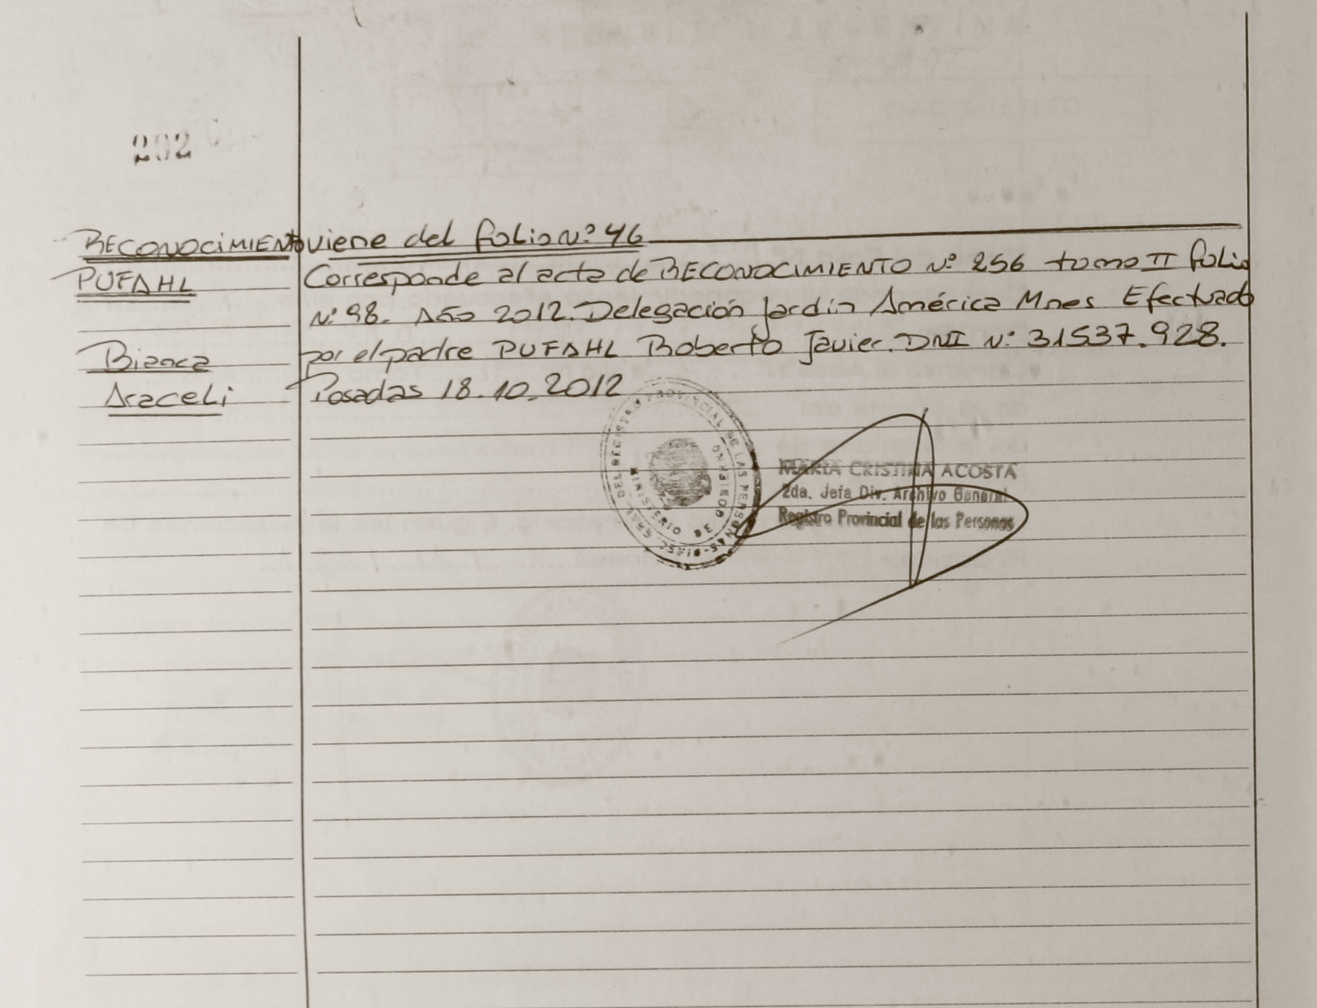 202
RECONOCIMIENTO viene del folio Nº 46
PUFAHL
Corresponde al acta de RECONOCIMIENTO Nº 256 tomo II folio
Nº 98. Año 2012. Delegación Jardín América Mnes Efectuado
Bianca
por el padre PUFAHL Roberto Javier. DNI Nº 31537.928.
Araceli
Posadas 18.10.2012
DEL REGISTRO PROVINCIAL DE LAS PERSONAS
MINISTERIO DE GOBIERNO
MARIA CRISTINA ACOSTA
2da. Jefa Div. Archivo General
Registro Provincial de las Personas